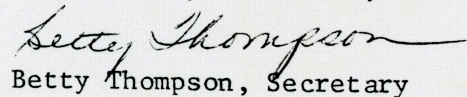 Betty Thompson
Betty Thompson, Secretary